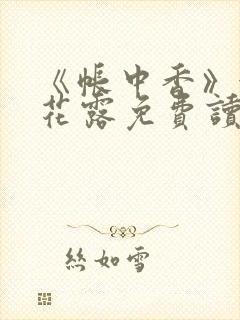 《帳中香》
花露免費讀
絲如雪